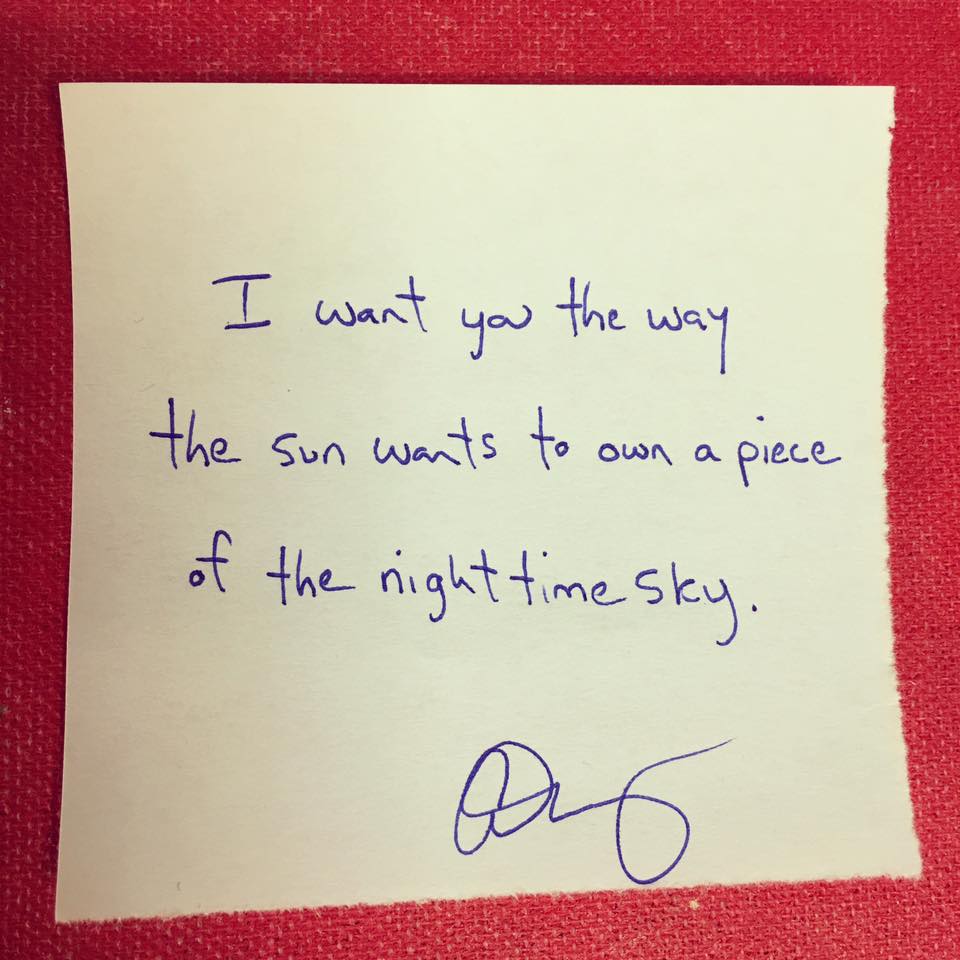 I want you the way
the sun wants to own a piece
of the night time sky.